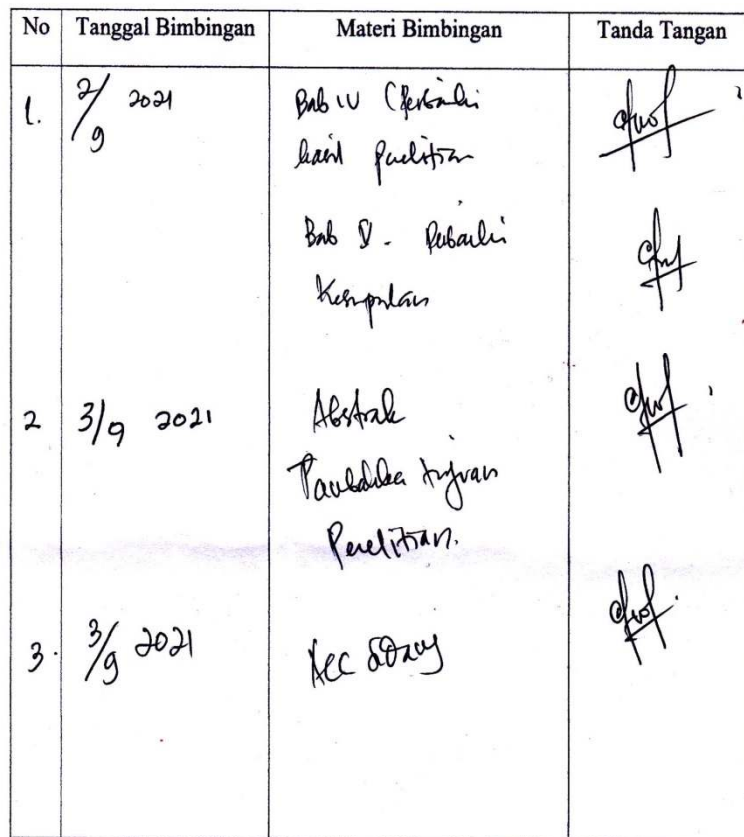 No Tanggal Bimbingan Materi Bimbingan Tanda Tangan
1. 2/9 2021 Bab IV (Perbaiki
hasil penelitian
Bab V. Perbaiki
Kesimpulan
2 3/9 2021 Abstrak
tujuan
Penelitian.
3. 3/9 2021 Acc